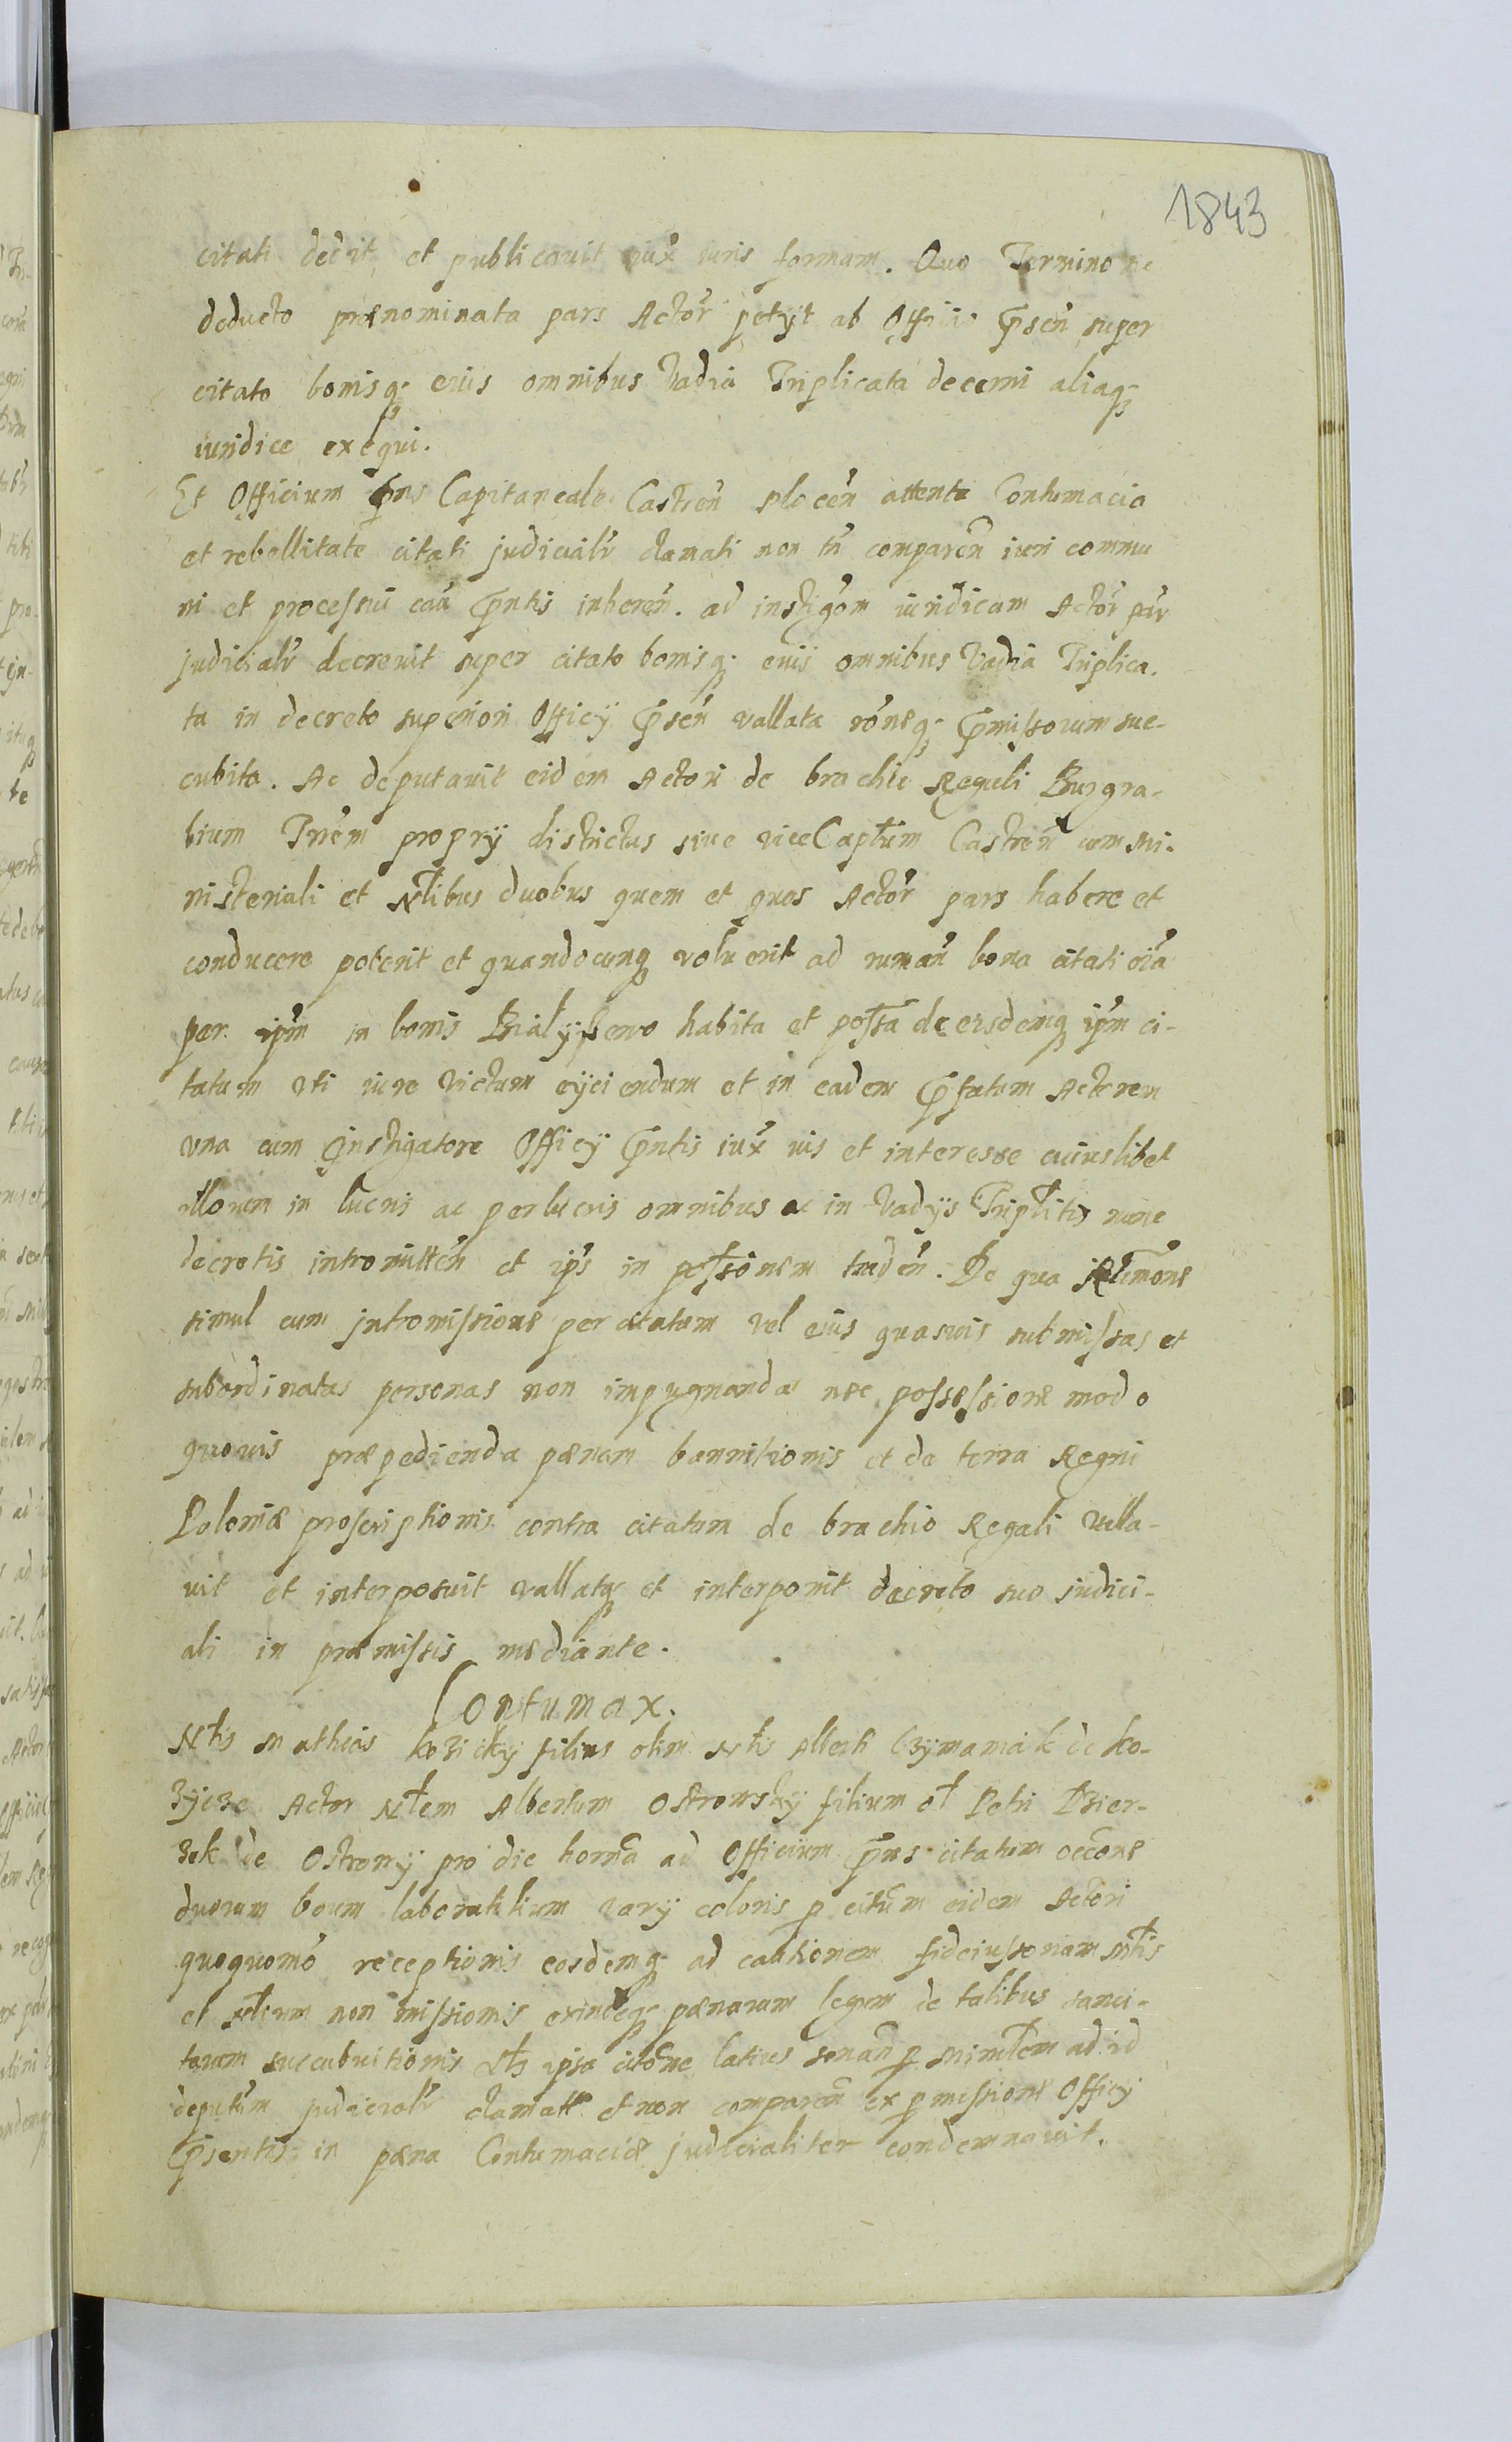 1843
citati dedit et publicauit iux iuris formam. Quo Termino
deducto prænominata pars Actor petyt ab Officio p̄sen̄ super
citato bonisq; eius omnibus Vadia Triplicata decerni aliaq;
iuridice exequi.
Et Officium p̄ns Capitaneale Castren̄ Plocen̄ attenta Contumacia
et rebellitate citati judicialr̄ clamati non tn̄ comparen̄ iuri commu
ni et processui cau p̄ntis inheren̄. ad instigom̄ iuridicam Actor̄ par
judicialr̄ decreuit super citato bonisq; eius omnibus Vadia Triplica.
ta in decreto superiori Officy p̄sen̄ vallata roneq; p̄missorum suc-
cubita. Ac deputauit eidem Actori de brachio Regali Burgra-
bium Trrem̄ propry districtus siue viceCaptūm Castren̄ cum Mi-
nisteriali et Ntlibus duobus quem et quos Actor̄ pars habere et
conducere poterit et quandocunq; voluerit ad ruman̄ bona citati oīa
per ipm̄ in bonis habita et possa de eisdemq; ipm̄ ci-
tatum vti iure victum eyciendum et in eadem p̄fatum Actorem
vna cum Instigatore Officy p̄ntis iux ius et interesse cuiuslibet
illorum in lucris ac perlucris omnibus ac in Vadys Triplitis nunc
decretis intromitten̄ et ips̄ in possionem traden̄. De qua
simul cum intromissione per citatum vel eius quasuis submissas et
subordinatas personas non impugnanda nec possessione modo
quouis præpedienda pænam bannitionis et de terra Regni
Poloniæ proscriptionis contra citatum de brachio Regali valla-
uit et interposuit vallatq; et interponit decreto suo judici-
ali in præmissis mediante.
Contumax.
Ntis Mathias Kozicky filius olim Ntis Alberti de Ko-
zycze Actor Ntem Albertum Ostrowsky filium ol Petri
de Ostrowy pro die horna ad Officium p̄ns citatum occone
duorum boum laboratilium vary coloris p citum eidem Actori
quoquomo receptionis eosdemq; ad cautionem fideiussoriam Mtis
et non missionis exindeq; pænarum legum de talibus sanci-
tarum succubuitionis vts ipsa citone latius sonan̄ p Minrlem ad id
deputum judicialr̄ clamatt et non comparen̄ ex p̄missione Officy
p̄sentis in pæna Contumaciæ judicialiter condemnauit.